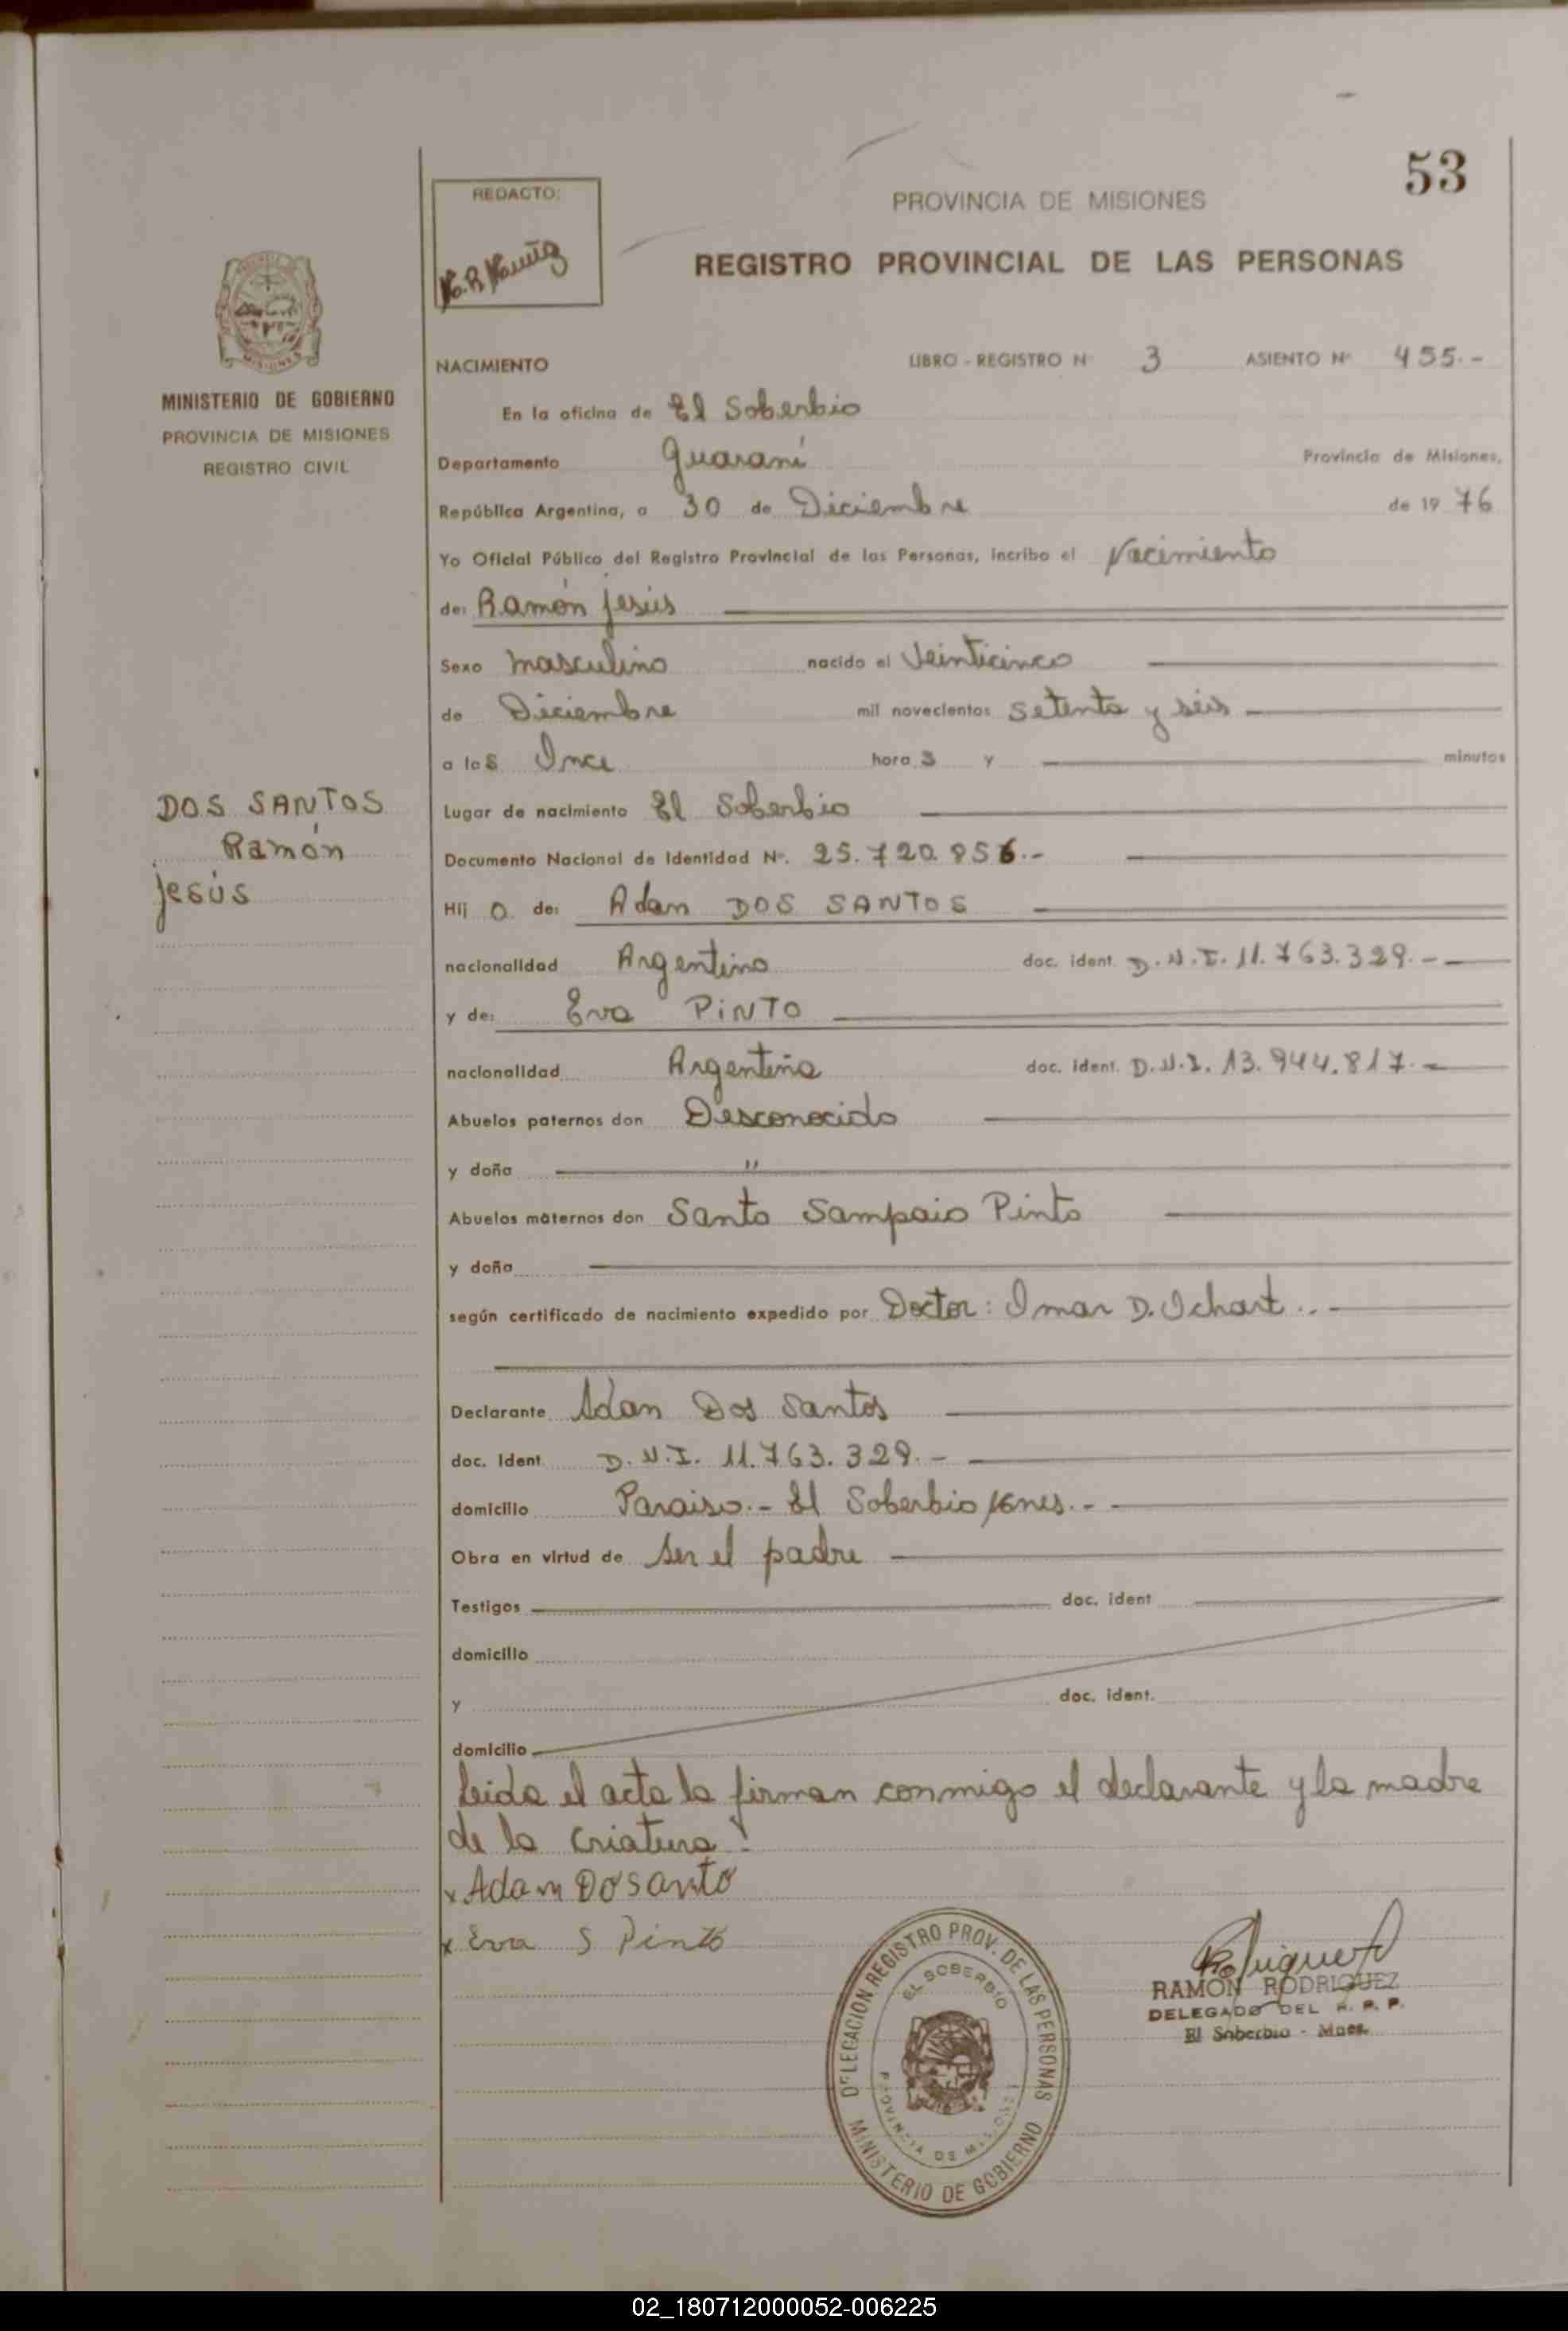 53
REDACTO:
PROVINCIA DE MISIONES
REGISTRO PROVINCIAL DE LAS PERSONAS
MINISTERIO DE GOBIERNO
PROVINCIA DE MISIONES
REGISTRO CIVIL
NACIMIENTO LIBRO - REGISTRO Nº 3 ASIENTO Nº 455.-
En la oficina de El Soberbio
Departamento Guaraní Provincia de Misiones,
República Argentina, a 30 de Diciembre de 19 76
Yo Oficial Público del Registro Provincial de las Personas, incribo el Nacimiento
de: Ramón Jesús
Sexo masculino nacido el Veinticinco
de Diciembre mil novecientos setenta y séis
a las Once horas y minutos
DOS SANTOS
Ramón
Jesús
Lugar de nacimiento El Soberbio
Documento Nacional de Identidad Nº. 25.720.856.-
Hij o de: Adan DOS SANTOS
nacionalidad Argentino doc. ident. D.N.I. 11.763.329.-
y de: Eva PINTO
nacionalidad Argentina doc. ident. D.N.I. 13.944.817.-
Abuelos paternos don Desconocido
y doña "
Abuelos maternos don Santo Sampaio Pinto
y doña
según certificado de nacimiento expedido por Doctor: Omar D. Ochart..-
Declarante Adan Dos Santos
doc. Ident D.N.I. 11.763.329.-
domicilio Paraiso.- El Soberbio Mnes.-
Obra en virtud de ser el padre
Testigos doc. ident
domicilio
y doc. ident.
domicilio
Leida el acta la firman conmigo el declarante y la madre
de la criatura.
x Adam Dosanto
x Eva S Pinto
DELEGACION REGISTRO PROV. DE LAS PERSONAS
EL SOBERBIO
PROVINCIA DE MISIONES
MINISTERIO DE GOBIERNO
RAMON RODRIGUEZ
DELEGADO DEL R. P. P.
El Soberbio - Mnes.
02_180712000052-006225